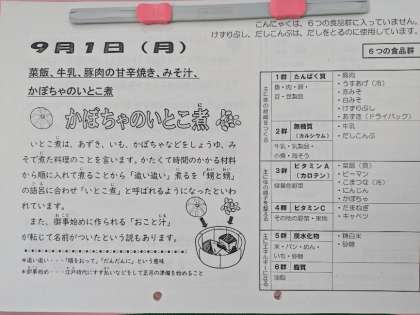 こんにゃくは、６つの食品群に入っていません。
けずりぶし、だしこんぶは、だしをとるのに使用しています。
９月１日（月）
６つの食品群
菜飯、牛乳、豚肉の甘辛焼き、みそ汁、
かぼちゃのいとこ煮
かぼちゃのいとこ煮
いとこ煮は、あずき、いも、かぼちゃなどをしょうゆ、み
そで煮た料理のことを言います。かたくて時間のかかる材料
から順に入れて煮ることから「追い追い」煮るを「甥と甥」
の語呂に合わせ「いとこ煮」と呼ばれるようになったといわ
れています。
また、御事始めに作られる「おこと汁」
が転じて名前がついたという説もあります。
＊追い追い・・・「順をおって」「だんだんに」という意味
１群 たんぱく質
魚・肉・卵・
豆・豆製品
・豚肉
・うすあげ（冷）
・赤みそ
・白みそ
・けずりぶし
・あずき（ドライパック）
２群 無機質
（カルシウム）
牛乳・乳製品・
小魚・海そう
・牛乳
・だしこんぶ
３群 ビタミンＡ
（カロテン）
緑黄色野菜
・菜飯（質）
・ピーマン
・こまつな（冷）
・にんじん
・かぼちゃ
４群 ビタミンＣ
その他の野菜・果物
・たまねぎ
・キャベツ
５群 炭水化物
米・パン・めん・
いも・砂糖
・精白米
・砂糖
６群 脂質
油脂